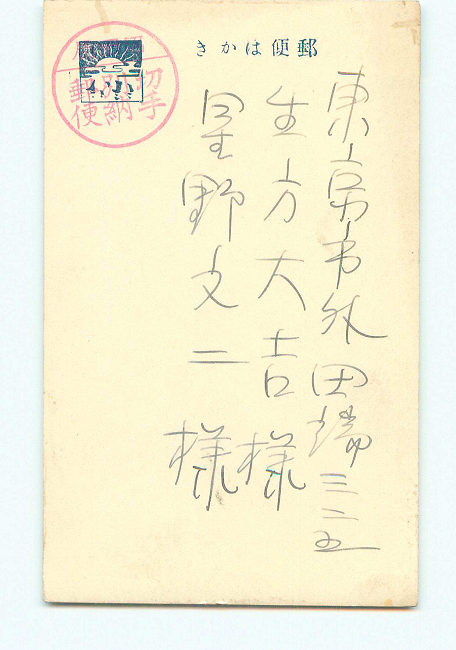 郵便はかき
東京市外田端三二五
生方大吉様
星野文二様
切手別納郵便